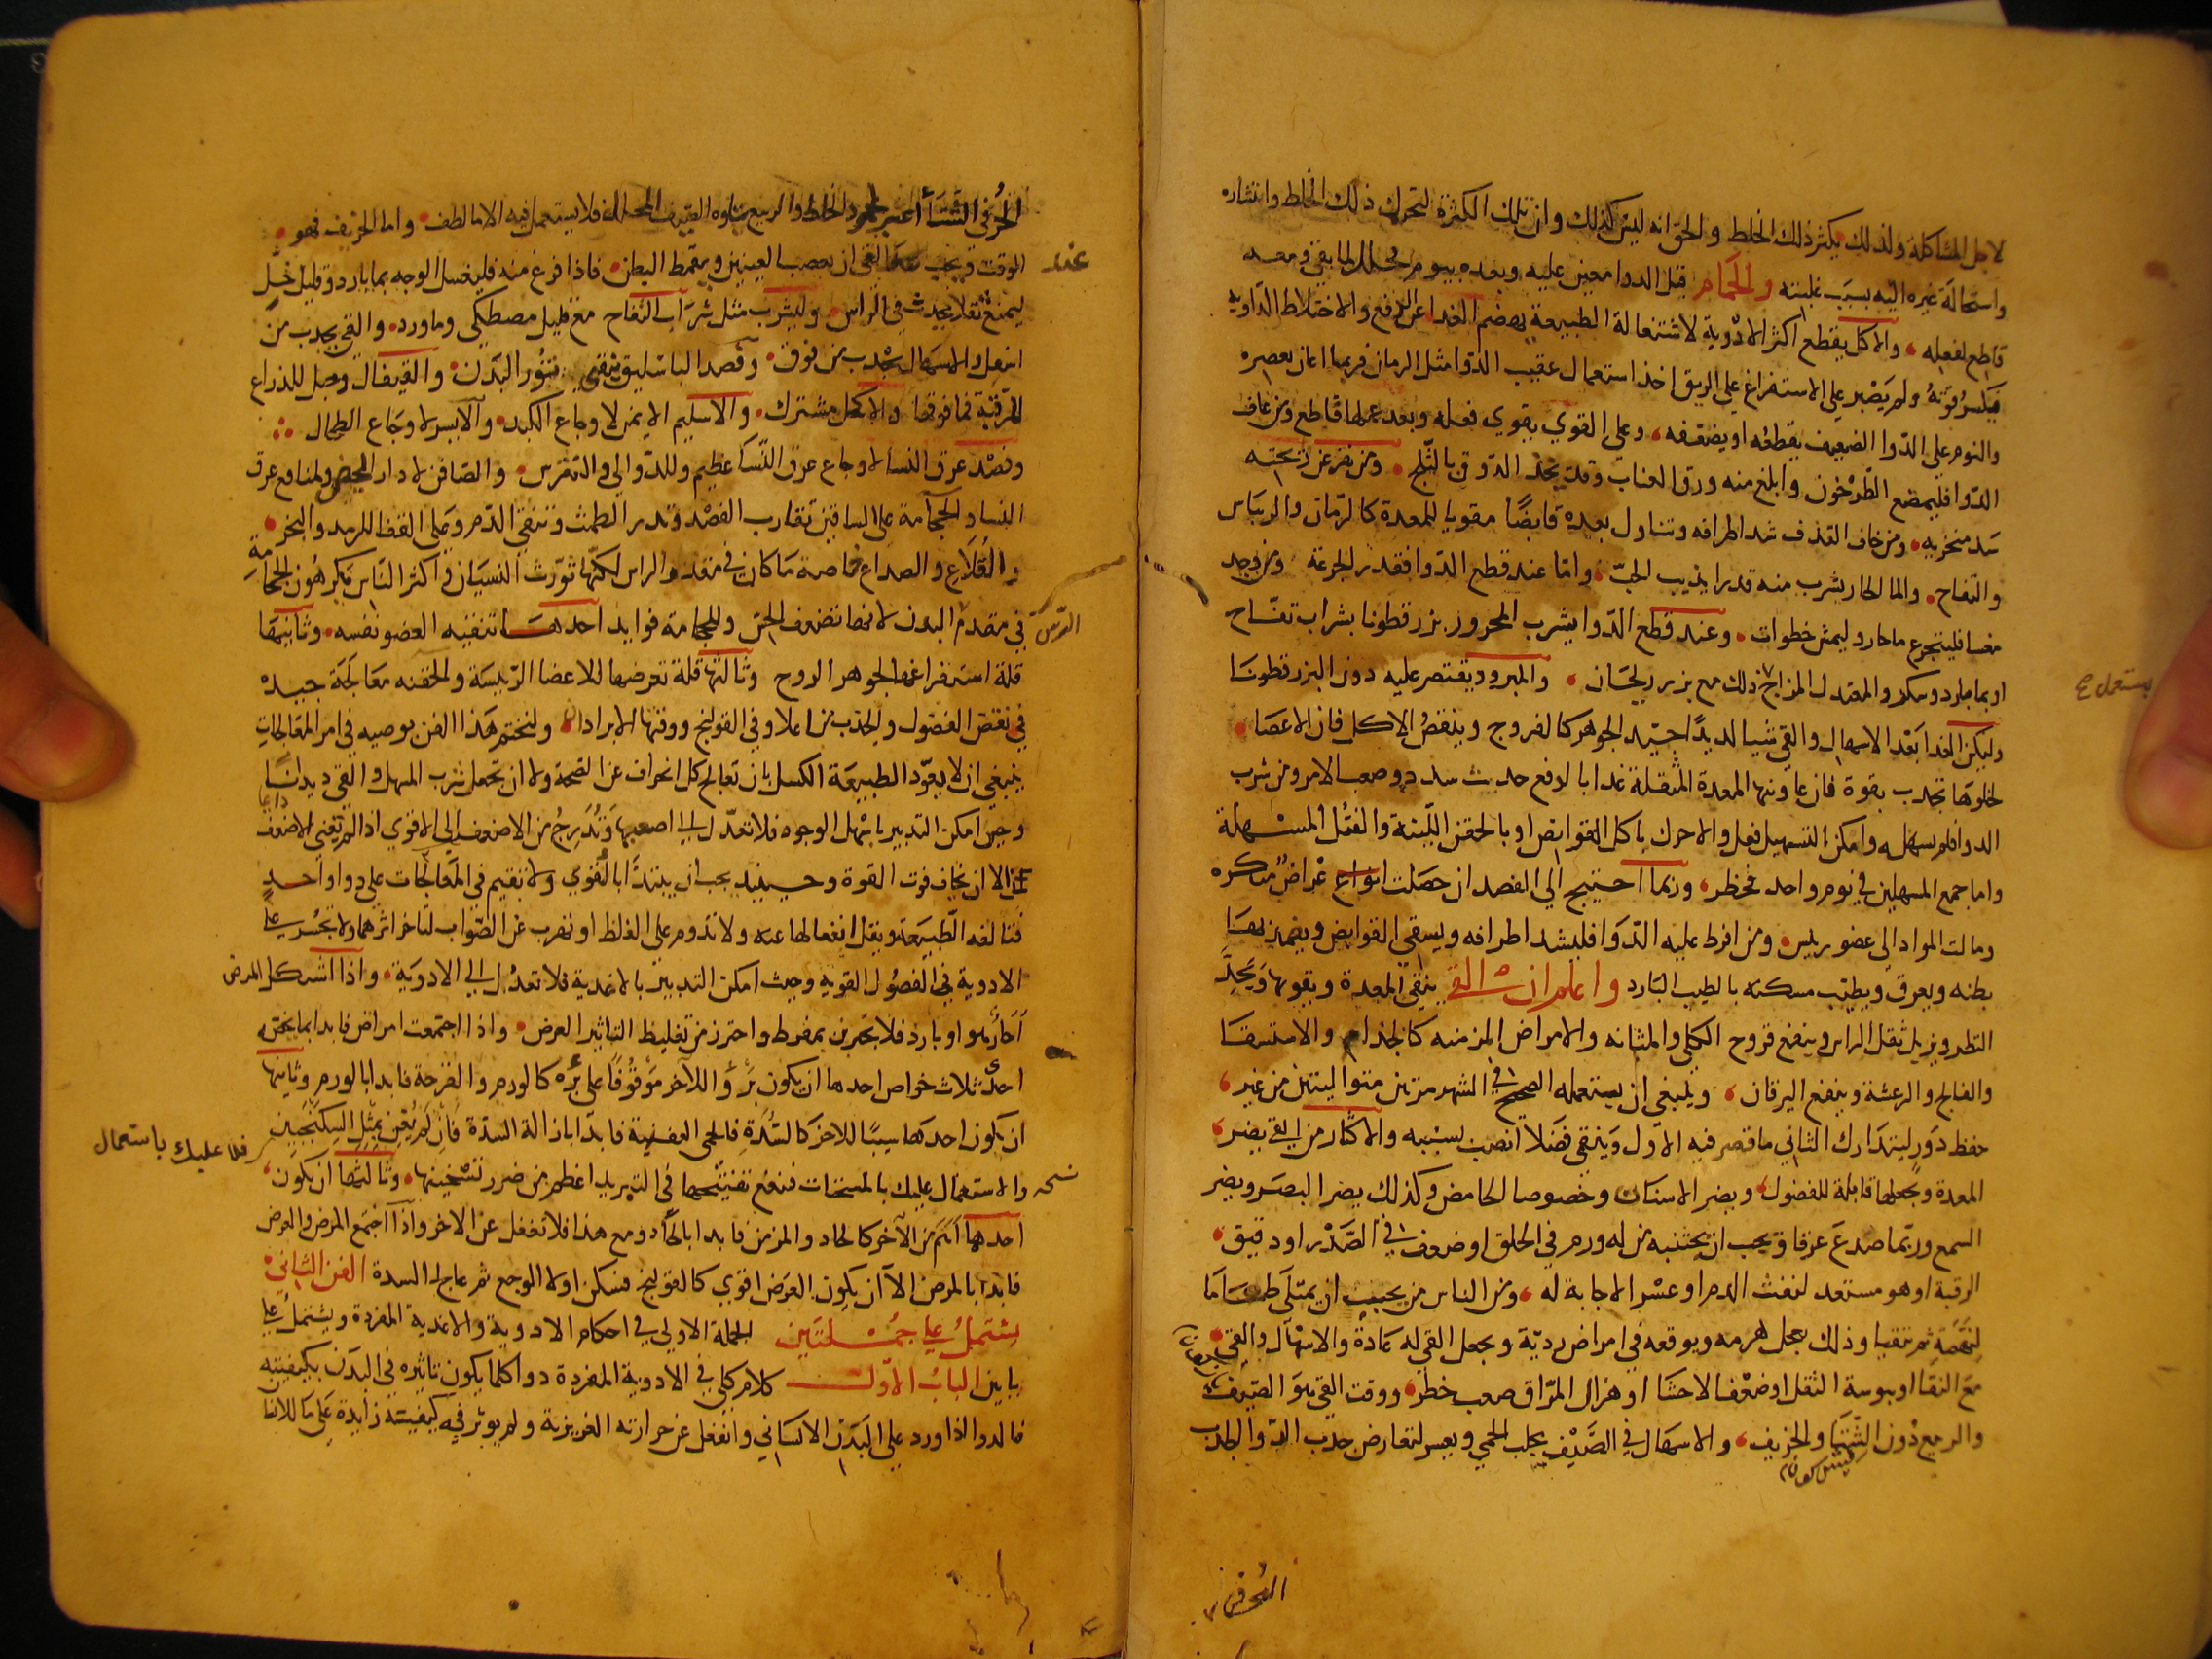 لاجل المشاكلة ولذلك يكثر ذلك الخلط والحق انه ليس كذلك وان تلك الكثرة لتحرك ذلك الخلط وانتشاره
واستحالة غيره اليه بسبب غلبته والحمام قبل الدوا معين عليه وبعده بيوم محلل لما بقي ومعه
قاطع لفعله والاكل يقطع اكثر الادوية لاشتغالة الطبيعة بهضم الغدا عن الدفع والاختلاط الداويه
فيكسر قوته ولم يصبر على الاستفراغ على الريق اخذ استعمال عقيب الدوا مثل الرمان فربما اعان بعصره
والنوم على الدوا الضعيف يقطعه او يضعفه وعلى القوي يقوي فعله وبعد عملها قاطع ومن عاف
الدوا فليمضغ الطرخون وابلغ منه ورق العناب وقد يخدر الذوق بالثلج ومن نفر عن رايحته
سد منخريه ومن خاف القذف شد اطرافه وتناول بعده قابضا مقويا للمعدة كالرمان والريباس
والتفاح والما الحار يشرب منه قدر ما يذيب الحب واما عند قطع الدوا فقدر الجرعة ومن وجد
مغسا فليتجرع ما حارا وليمش خطوات وعند قطع الدوا يشرب المحرور بزرقطونا بشراب تفاح
او بما بارد وسكر والمعتدل المزاج ذلك مع بزر ريحان والمبرود يقتصر عليه دون البزرقطونا
يستعمل
وليكن الغدا بعد الاسهال والقي شيا لذيذا جيد الجوهر كالفروج وينقص الاكل فان الاعضا
لخلوها تجدب بقوة فان عاونها المعدة المثقلة غدا بالدفع حدث سدد وصعب الامر ومن شرب
الدوا فلم يسهله وامكن التسهيل فعل والا حرك باكل القوابض او بالحقن اللينة والفتل المسهلة
واما جمع المسهلين في يوم واحد فخطر وربما احتيج الى الفصد ان حصلت انواع عراض منكره
ومالت المواد الى عضو ريس ومن افرط عليه الدوا فليشد اطرافه ويسقى القوابض ويضمد بها
بطنه ويعرق ويطيب مسكنه بالطيب البارد واعلم ان القي ينقي المعدة ويقويها ويحد
النظر ويزيل ثقل الراس وينفع قروح الكلى والمثانه والامراض المزمنه كالجذام والاستسقا
والفالج والرعشة وينفع اليرقان وينبغي ان يستعمله الصحيح في الشهر مرتين متواليتين من غير
حفظ دور ليتدارك الثاني ما قصر فيه الاول وينقي فضلا انصب بسببه والاكثار من القي يضر
المعدة ويجعلها قابلة للفضول ويضر الاسنان وخصوصا الحامض وكذلك يضر البصر ويضر
السمع وربما صدع عرقا ويجب ان يجتنبه من له ورم في الحلق او ضعف في الصدر او دقيق
الرقبة او هو مستعد لنفث الدم او عسر الاجابة له ومن الناس من يحب ان يمتلى طعاما
لنهمة ثم يتقيا وذلك يعجل هرمه ويوقعه في امراض ردية ويجعل القي له عادة والاسهال والقي
مع النقا او يبوسة الثقل او ضعف الاحشا او هزال المراق صعب خطر ووقت القي هو الصيف
والربيع دون الشتا والخريف والاسهال في الصيف يجلب الحمى ويعسر لتعارض جدب الدوا لجذب
الحر في
الحر في الشتا اعسر لجمود الخلط والربيع يتلوه الصيف المحلل فلا يستعمل فيه الا ما لطف واما الخريف فهو
الوقت ويجب عند القي ان يعصب العينين ويقمط البطن فاذا فرغ منه فليغسل الوجه بما بارد وقليل خل
عند
ليمنع ثقلا يحدث في الراس وليشرب مثل شراب التفاح مع قليل مصطكى وماورد والقي يجدب من
اسفل والاسهال يجدب من فوق وفصد الباسليق ينقي تنور البدن والقيفال وحبل الذراع
للرقبة فما فوقها والاكحل مشترك والاسليم الايمن لاوجاع الكبد والايسر لاوجاع الطحال
وفصد عرق النسا لاوجاع عرق النسا عظيم وللدوالي والنقرس والصافن لادرار الحيض ولمنافع عرق
النسا والحجامة على الساقين تقارب الفصد وتدر الطمث وتنقي الدم وعلى القفا للرمد والبخر
والقلاع والصداع خاصة ما كان في مقدم الراس لكنها تورث النسيان واكثر الناس يكرهون الحجامة
في مقدم البدن لانها تضعف الحس وللحجامة فوايد احدها تنقيه العضو نفسه وثانيها
قلة استفراغها لجوهر الروح وثالثها قلة تعرضها للاعضا الريسة والحقنه معالجة جيده
في نقص الفضول والجدب من اعلا وفي القولنج ووقتها الابرادان ولنختم هذا الفن بوصيه في امر المعالجات
ينبغي ان لا يعود الطبيعة الكسل بان تعالج كل انحراف عن الصحة ولا ان تجعل شرب المسهل والقي ديدنا
وحيث امكن التدبير باسهل الوجوه فلا تعدل الى اصعبها وتدرج من الاضعف الى الاقوى اذا لم يغني الاضعف
الا ان يخاف فوت القوة وحينيذ يجب ان يبتدا بالقوي ولا تقيم في المعالجات على دوا واحد
فتالفه الطبيعة ويقل انفعالها عنه ولا تدوم على الغلط او تهرب عن الصواب لتاخر اثرهما ولا تجسر على
الادوية في الفصول القويه وحيث امكن التدبير بالاغدية فلا تعدل الى الادوية واذا اشكل المرض
احار هو او بارد فلا تجربن بمفرط واحترز من تغليط التاثير العرض واذا اجتمعت امراض فابدا بما يخصه
احدى ثلاث خواص احدها ان يكون برؤ الاخر موقوفا على برؤه كالورم والقرحة فابدا بالورم وثانيها
ان يكون احدهما سببا للاخر كالسدة والحمى العفنية فابدا بازالة السدة فان لم يغن بمثل السكنجبين
فلا عليك باستعمال
والاستعمال عليك بالمسخنات فنفع تفتيحها في التبريد اعظم من ضرر تسخينها وثالثها ان يكون
نسخه
احدهما اهم من الاخر كالحاد والمزمن فابدا بالحاد ومع هذا فلا تغفل عن الاخر واذا اجتمع المرض والعرض
فابدا بالمرض الا ان يكون العرض اقوى كالقولنج فسكن اولا الوجع ثم عالج السدة الفن الثاني
يشتمل على جملتين الجملة الاولى في احكام الادوية والاغدية المفردة ويشتمل على
بابين الباب الاول كلام كلي في الادوية المفردة دوا كلما يكون تاثيره في البدن بكيفيته
فالدوا اذا ورد على البدن الانساني وانفعل عن حرارته الغريزية ولم يوثر فيه كيفيته زايدة على ما للانسا